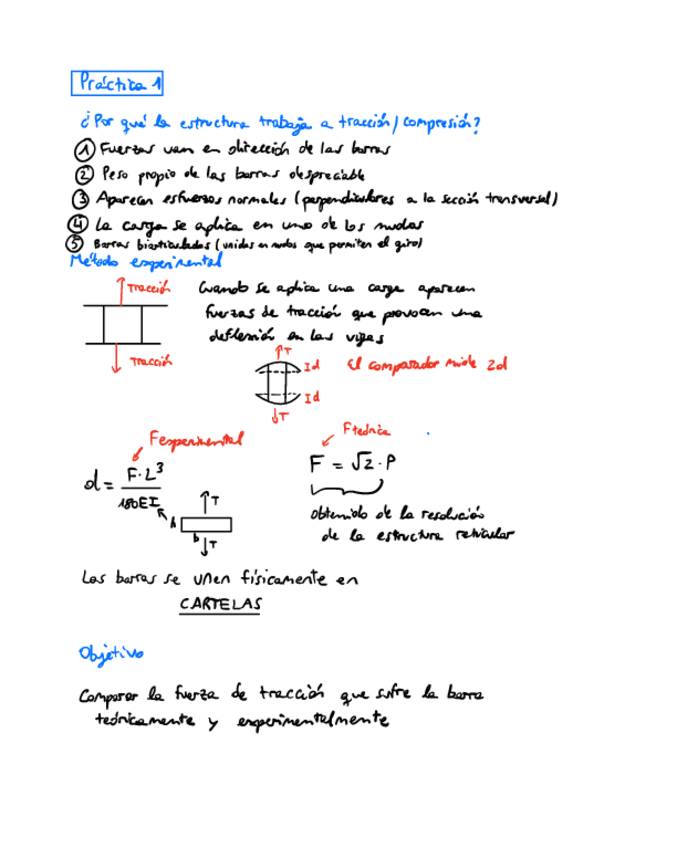 Práctica 1
¿Por qué la estructura trabaja a tracción / compresión?
① Fuerzas van en dirección de las barras
② Peso propio de las barras despreciable
③ Aparecen esfuerzos normales (perpendiculares a la sección transversal)
④ La carga se aplica en uno de los nudos
⑤ Barras biarticuladas (unidas en nudos que permiten el giro)
Método experimental
Tracción
Cuando se aplica una carga aparecen
fuerzas de tracción que provocan una
deflexión en las vigas
Tracción
↑T
Id
El comparador mide 2d
Id
↓T
Fexperimental
Fteórica
d = F·L³ / 180EI
F = √2 · P
↑T
h
b
↓T
Obtenido de la resolución
de la estructura reticular
Las barras se unen físicamente en
CARTELAS
Objetivo
Comparar la fuerza de tracción que sufre la barra
teóricamente y experimentalmente